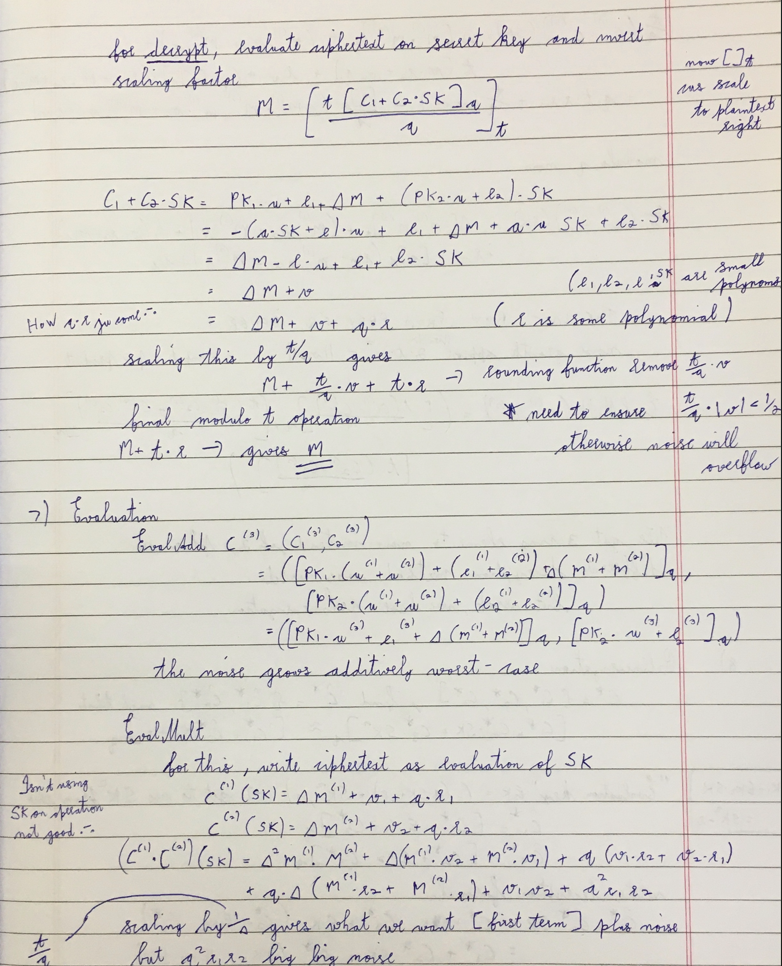 for decrypt, evaluate ciphertext on secret key and invert
scaling factor
M = [ t [C₁ + C₂·SK]_q / q ]_t
now [ ]_t
can scale
to plaintext
right
C₁ + C₂·SK = PK₁·u + e₁ + ΔM + (PK₂·u + e₂)·SK
= -(a·SK + e)·u + e₁ + ΔM + a·u SK + e₂·SK
= ΔM - e·u + e₁ + e₂·SK
= ΔM + v
(e₁, e₂, e, SK are small
polynoms
How q·r ju come :-
= ΔM + v + q·r
(r is some polynomial)
scaling this by t/q gives
M + t/q·v + t·r → rounding function remove t/q·v
final modulo t operation
* need to ensure t/q·|v| < 1/2
M + t·r → gives M
otherwise noise will
overflow
7) Evaluation
EvalAdd C⁽³⁾ = (C₁⁽³⁾, C₂⁽³⁾)
= ([PK₁·(u⁽¹⁾+u⁽²⁾) + (e₁⁽¹⁾+e₂⁽²⁾) Δ(m⁽¹⁾+m⁽²⁾)]_q,
[PK₂·(u⁽¹⁾+u⁽²⁾) + (e₂⁽¹⁾+e₂⁽²⁾)]_q)
= ([PK₁·u⁽³⁾ + e₁⁽³⁾ + Δ(m⁽¹⁾+m⁽²⁾)]_q, [PK₂·u⁽³⁾ + e₂⁽³⁾]_q)
the noise grows additively worst-case
EvalMult
for this, write ciphertext as evaluation of SK
Isn't using
SK on operation
not good :-
C⁽¹⁾(SK) = ΔM⁽¹⁾ + v₁ + q·r₁
C⁽²⁾(SK) = ΔM⁽²⁾ + v₂ + q·r₂
(C⁽¹⁾·C⁽²⁾)(SK) = Δ²M⁽¹⁾·M⁽²⁾ + Δ(M⁽¹⁾·v₂ + M⁽²⁾·v₁) + q(v₁·r₂ + v₂·r₁)
+ q·Δ(M⁽¹⁾·r₂ + M⁽²⁾·r₁) + v₁v₂ + q²r₁r₂
scaling by 1/Δ gives what we want [first term] plus noise
t/q
but q²r₁r₂ big big noise